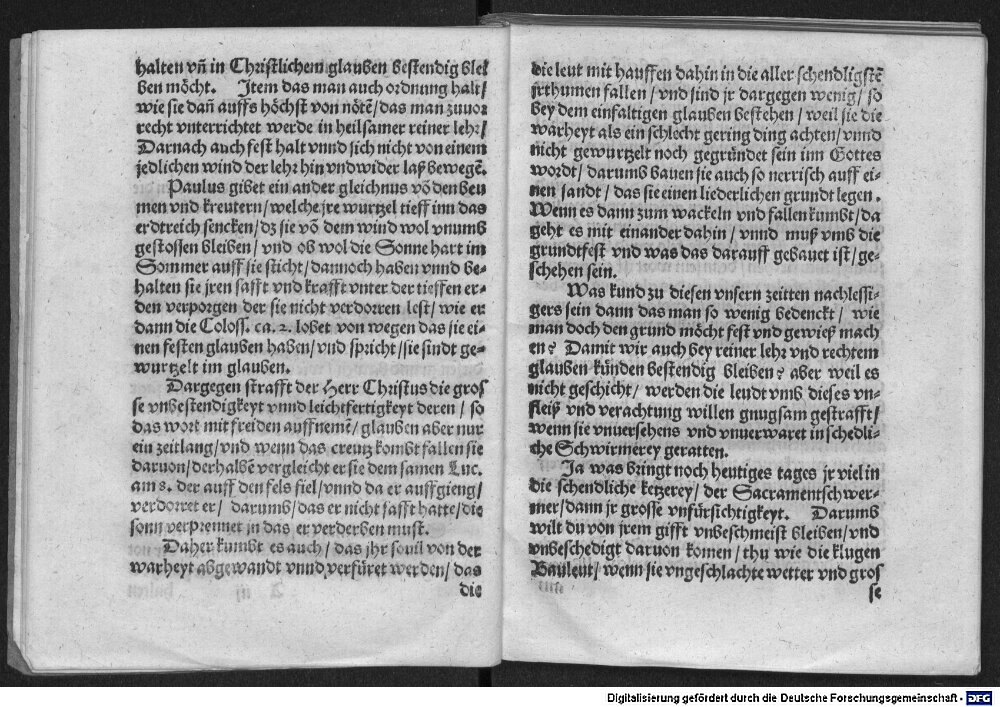 halten vñ in Christlichem glauben bestendig blei
ben möcht. Item das man auch ordnung halt/
wie sie dañ auffs höchst von nötē/das man zuuor
recht vnterrichtet werde in heilsamer reiner lehr/
Darnach auch fest halt vnnd sich nicht von einem
jedlichen wind der lehr hin vndwider laß bewegē.
Paulus gibet ein ander gleichnus vō den beu
men vnd kreutern/welche jre wurtzel tieff inn das
erdtreich sencken/dz sie vō dem wind wol vnumb
gestossen bleiben/vnd ob wol die Sonne hart im
Sommer auff sie sticht/dannoch haben vnnd be-
halten sie jren safft vnd krafft vnter der tieffen er-
den verporgen der sie nicht verdorren lest/wie er
dann die Coloss. ca. 2. lobet von wegen das sie ei-
nen festen glauben haben/vnd spricht/sie sindt ge-
wurtzelt im glauben.
Dargegen strafft der Herr Christus die gros
se vnbestendigkeyt vnnd leichtfertigkeyt deren/so
das wort mit freiden auffnemē/glauben aber nur
ein zeitlang/vnd wenn das creutz kombt fallen sie
daruon/derhalbē vergleicht er sie dem samen Luc.
am 8. der auff den fels fiel/vnnd da er auffgieng/
verdorret er/ darumb/das er nicht safft hatte/die
sonn verprenner jn das er verderben must.
Daher kumbt es auch/das jhr souil von der
warheyt abgewandt vnnd verfüret werden/das
die
die leut mit hauffen dahin in die aller schendligstē
jrthumen fallen/vnd sind jr dargegen wenig/so
bey dem einfaltigen glauben bestehen/weil sie die
warheyt als ein schlecht gering ding achten/vnnd
nicht gewurtzelt noch gegründet sein inn Gottes
wordt/darumb bauen sie auch so nerrisch auff ei-
nen sandt/das sie einen liederlichen grundt legen.
Wenn es dann zum wackeln vnd fallen kumbt/da
geht es mit einander dahin/vnnd muß vmb die
grundtfest vnd was das darauff gebauet ist/ge-
schehen sein.
Was kund zu diesen vnsern zeitten nachlessi-
gers sein dann das man so wenig bedenckt/ wie
man doch den grund möcht fest vnd gewieß mach
en? Damit wir auch bey reiner lehr vnd rechtem
glauben künden bestendig bleiben? aber weil es
nicht geschicht/werden die leudt vmb dieses vn-
fleiß vnd verachtung willen gnugsam gestrafft/
wenn sie vnuersehens vnd vnuerwaret in schedli-
che Schwirmerey geratten.
Ja was bringt noch heutiges tages jr viel in
die schendliche ketzerey/der Sacramentschwer-
mer/dann jr grosse vnfürsichtigkeyt. Darumb
wilt du von jrem gifft vnbeschmeist bleiben/vnd
vnbeschedigt daruon komen/thu wie die klugen
Bauleut/wenn sie vngeschlachte wetter vnd gros
se
Digitalisierung gefördert durch die Deutsche Forschungsgemeinschaft - DFG